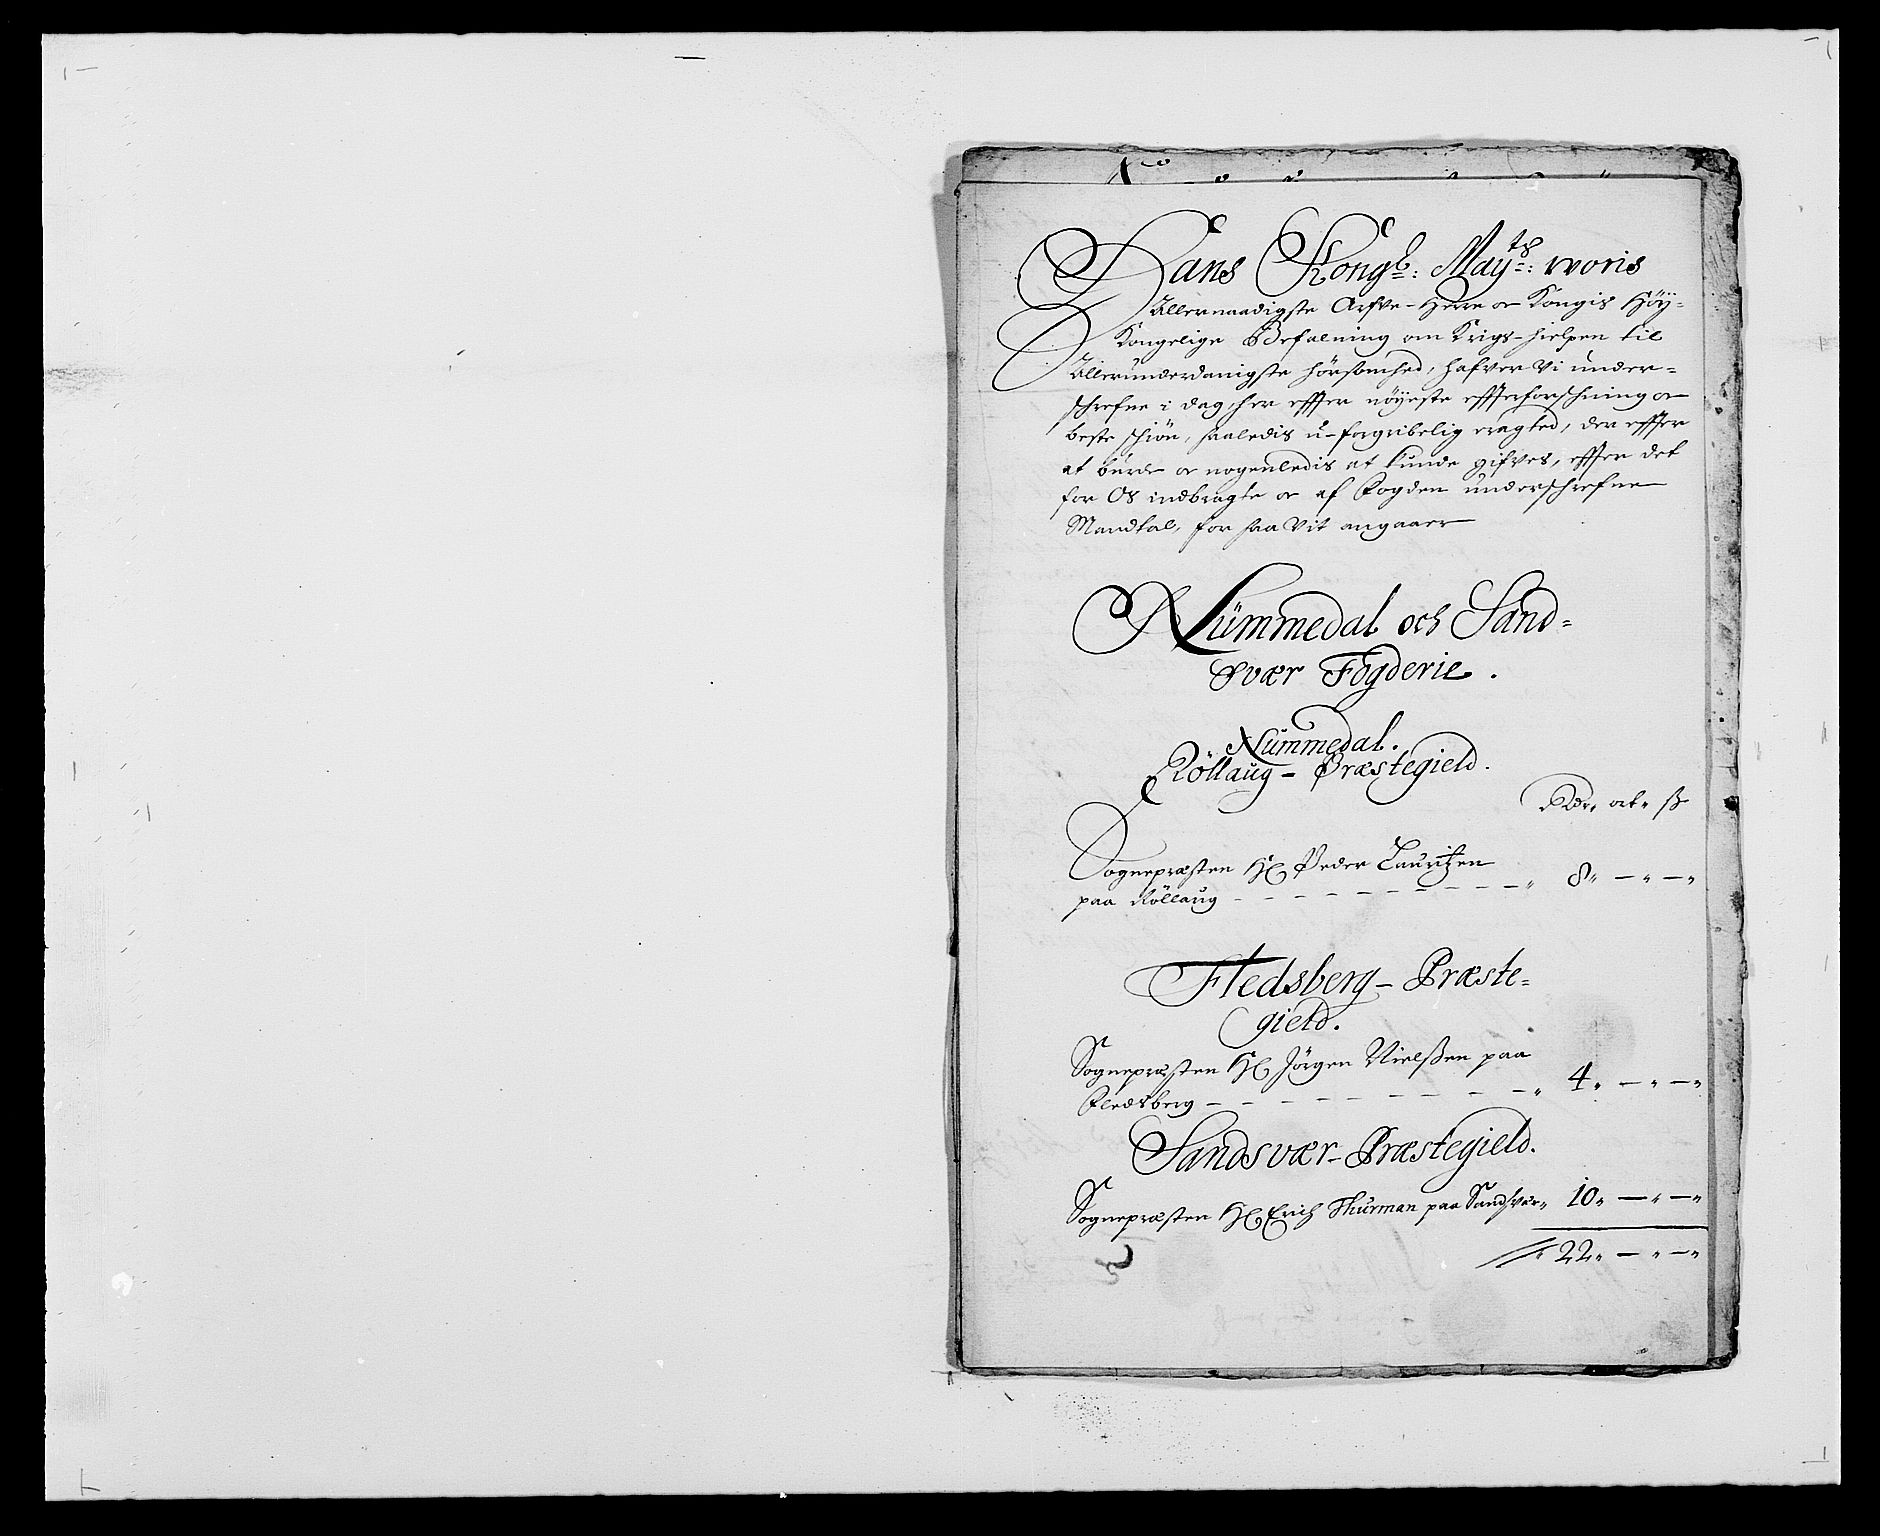 Hans Kongl: Mayts: woris
Allernaadigste Arfve-Herre oc Kongis Höy-
Kongelige Befalning om Krigs-hielpen til
Allerunderdanigste hörsomhed, hafver Vi under=
schrefne i dag, her effter nöyeste effterforschning oc
beste schiön, saaledis u-forgribelig eragted, der effter
at burde oc nogenledis at kunde gifves, effter det
for Os indbragte oc af Fogden underschrefne
Mandtal, for saa Vit angaaer
Nummedal och Sand=
svær Fogderie.
Nummedal.
Röllaug - Præstegield.
Rdr, ort, ß
Sognepræsten Hr Peder Lauritzen
paa Röllaug - - - - - - - - - - „ 8„ — „ — „
Fledsberg - Præste=
gield.
Sognepræsten Hr Jörgen Nielßen paa
Fledsberg - - - - - - - - - - „ 4„ — „ — „
Sandsvær - Præstegield.
Sognepræsten Hr Erich Thurman paa Sandsvær„ 10„ — „ — „
„ 22„ — „ — „